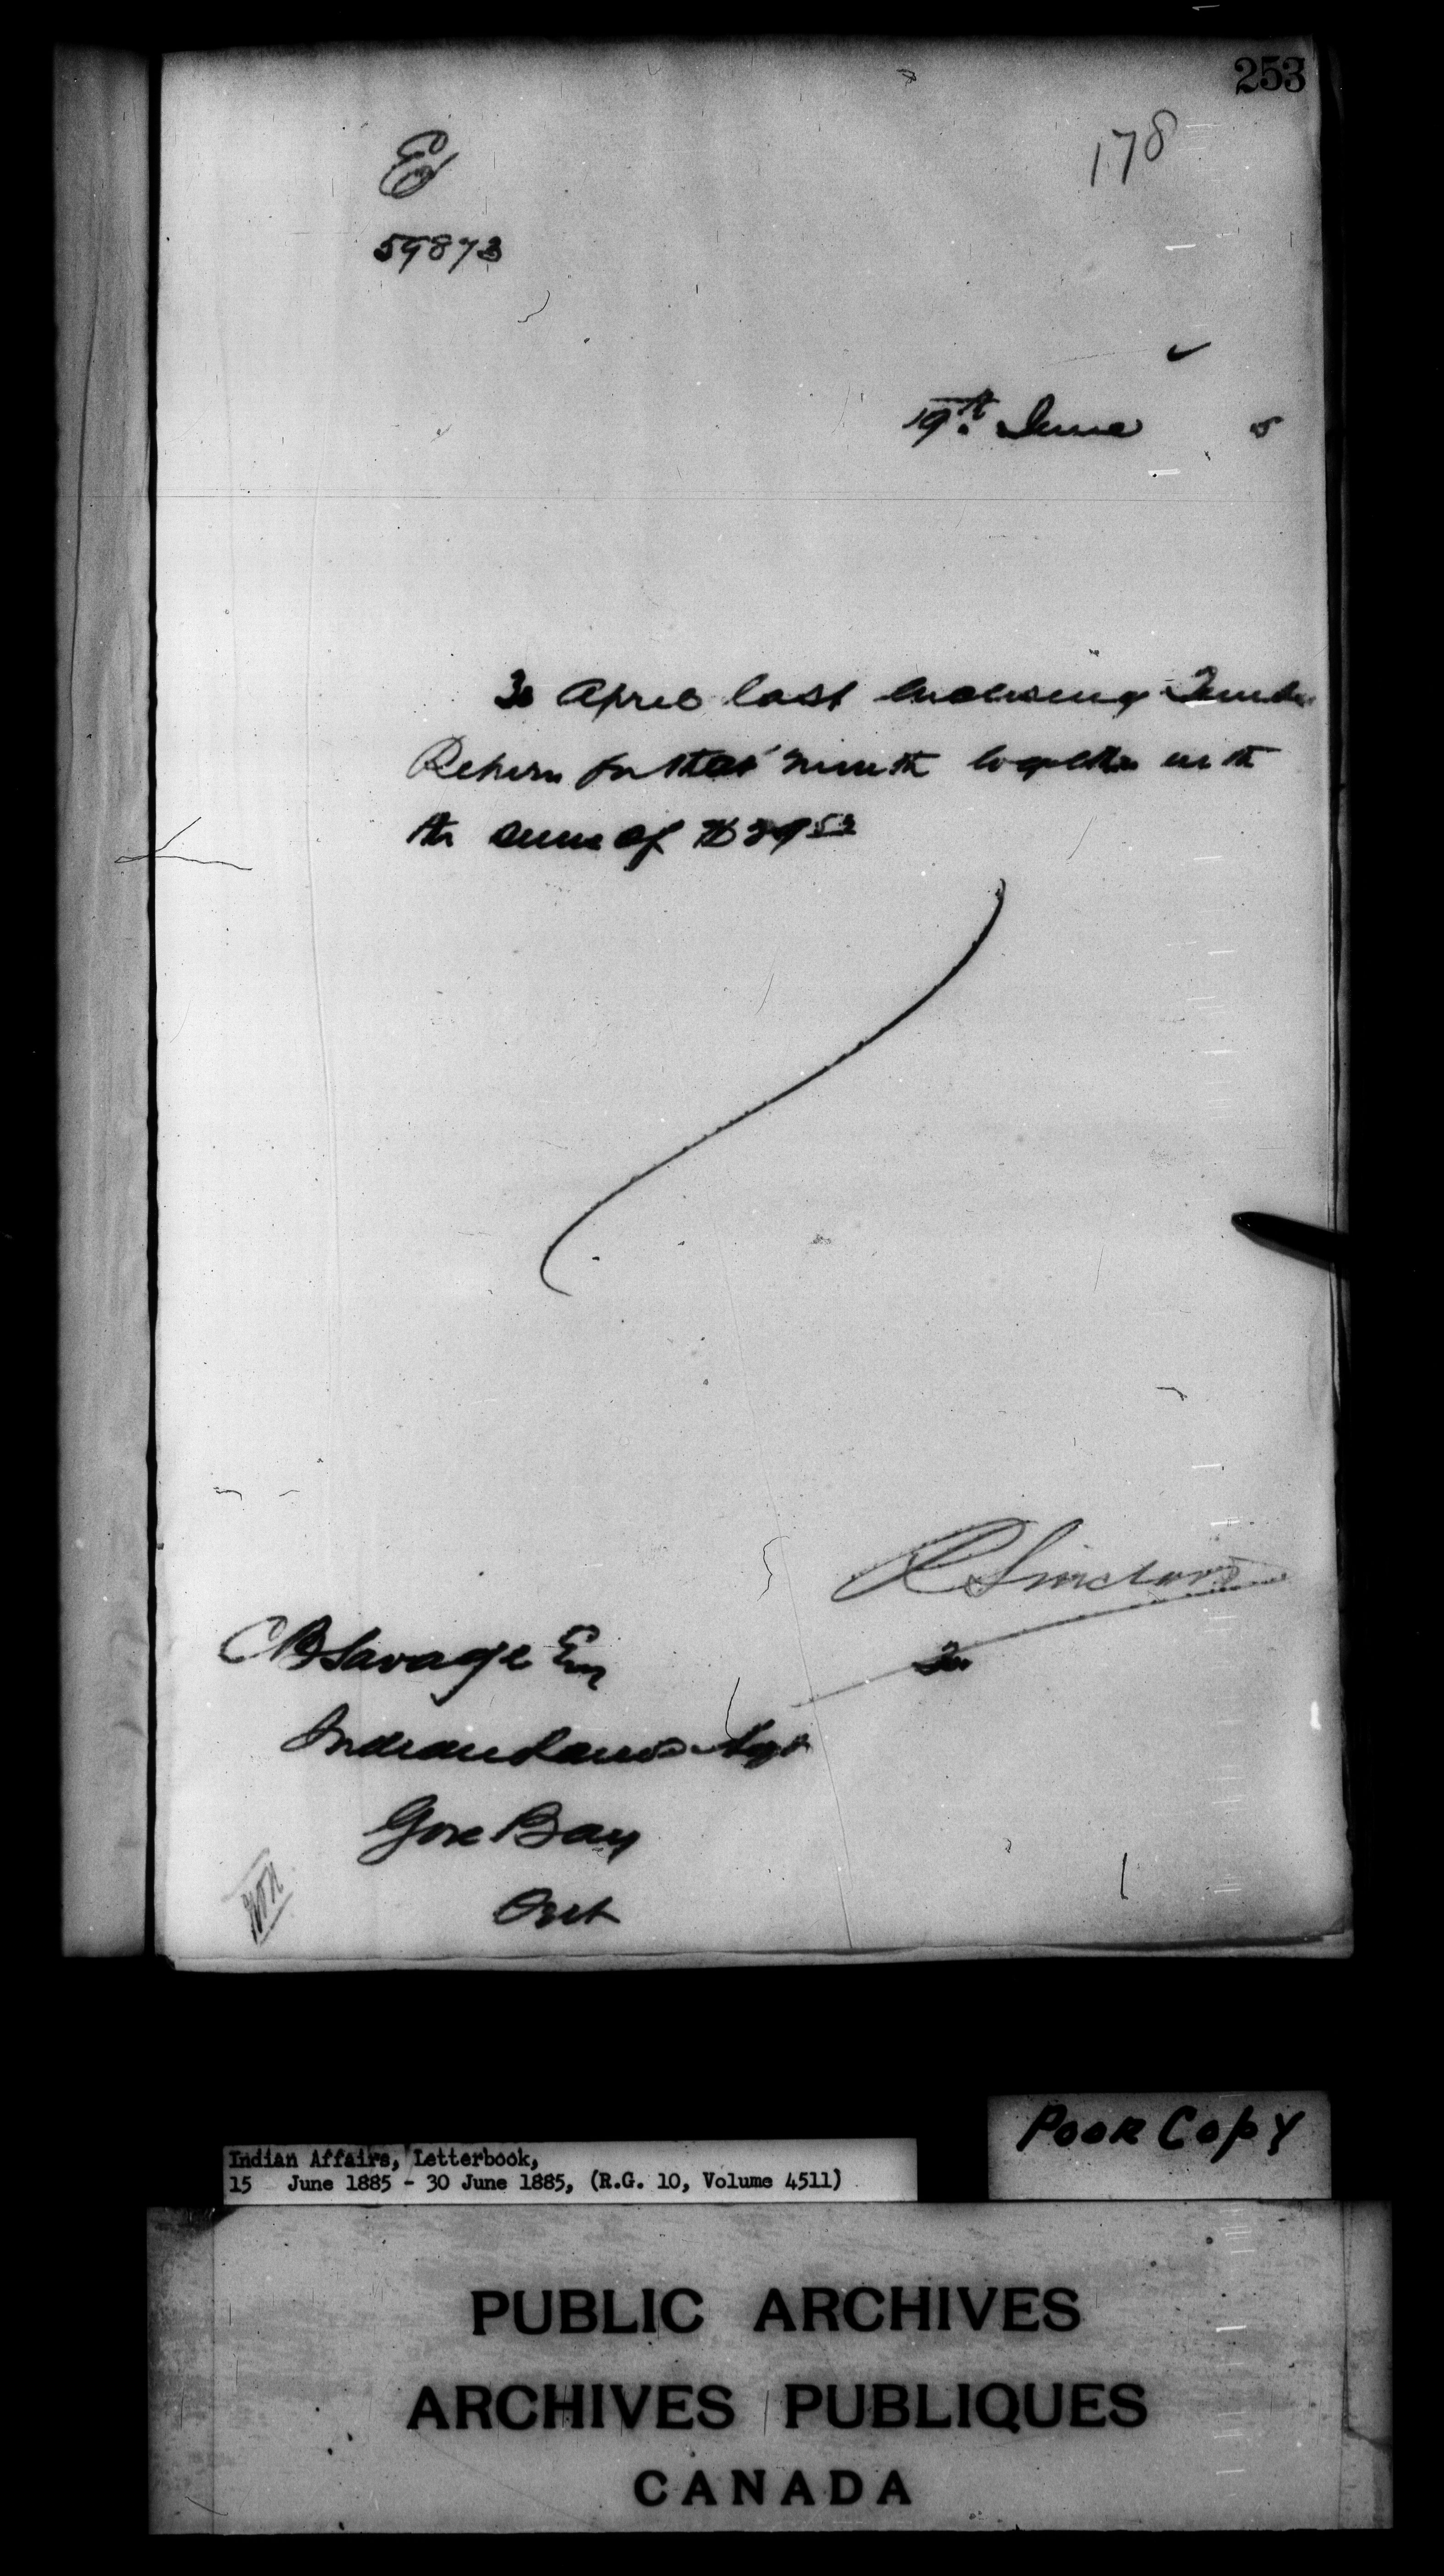 253
178
E
59873
19th June 5
30 April last enclosing Timber
Return for that month together with
the sum of $29
R Sinclair
CB Savage Esq
Indian Lands Agt
Gore Bay
Ont
Poor Copy
Indian Affairs, Letterbook,
15 June 1885 - 30 June 1885, (R.G. 10, Volume 4511)
PUBLIC ARCHIVES
ARCHIVES PUBLIQUES
CANADA